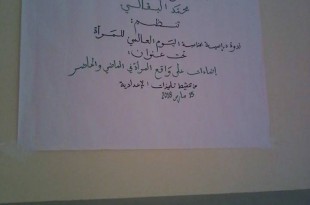 محمد البقالي
تنظم:
ندوة دراسية بمناسبة اليوم العالمي للمرأة
تحت عنوان:
إضاءات على واقع المرأة في الماضي والحاضر
تلميذات الإعدادية
15 مارس